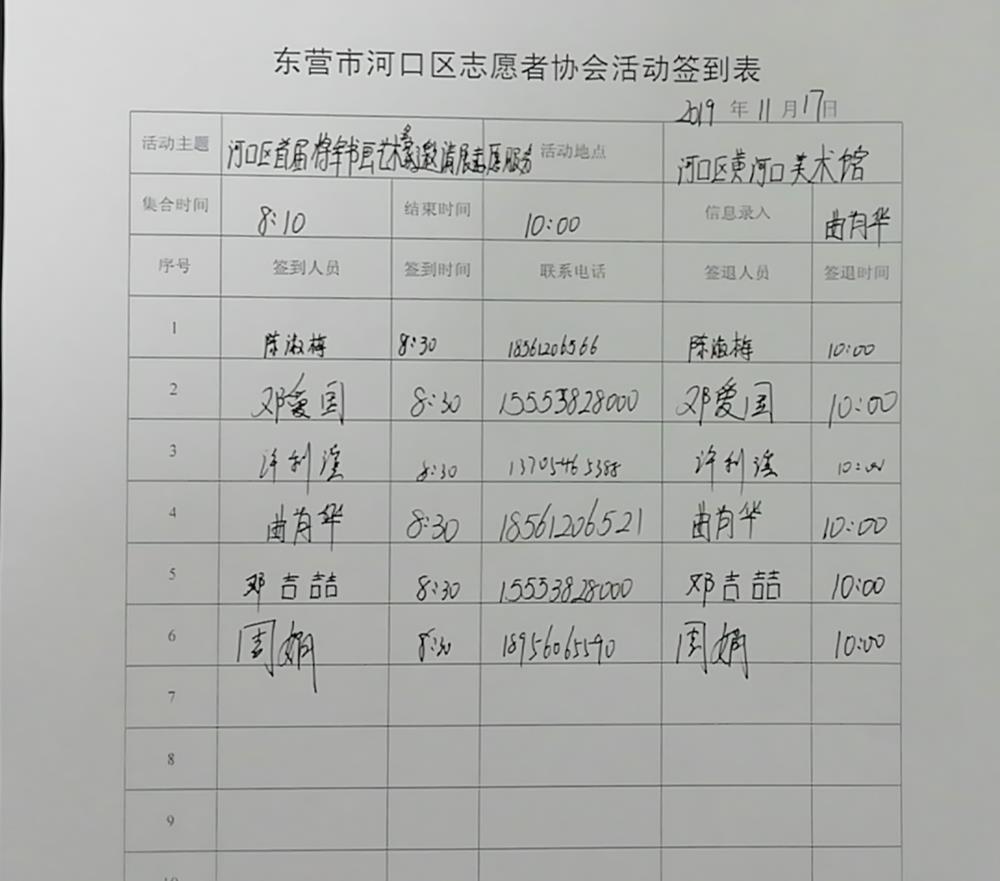 东营市河口区志愿者协会活动签到表
2019 年 11 月 17 日
活动主题 河口区首届 书画艺术 邀请展志愿服务 活动地点 河口区黄河口美术馆
集合时间 8:10 结束时间 10:00 信息录入 曲肖华
序号 签到人员 签到时间 联系电话 签退人员 签退时间
1 陈淑梅 8:30 18561206566 陈淑梅 10:00
2 邓爱国 8:30 15553828000 邓爱国 10:00
3 许利 8:30 13705465388 许利 10:00
4 曲肖华 8:30 18561206521 曲肖华 10:00
5 邓吉喆 8:30 15553828000 邓吉喆 10:00
6 周娟 8:30 18956065590 周娟 10:00
7
8
9